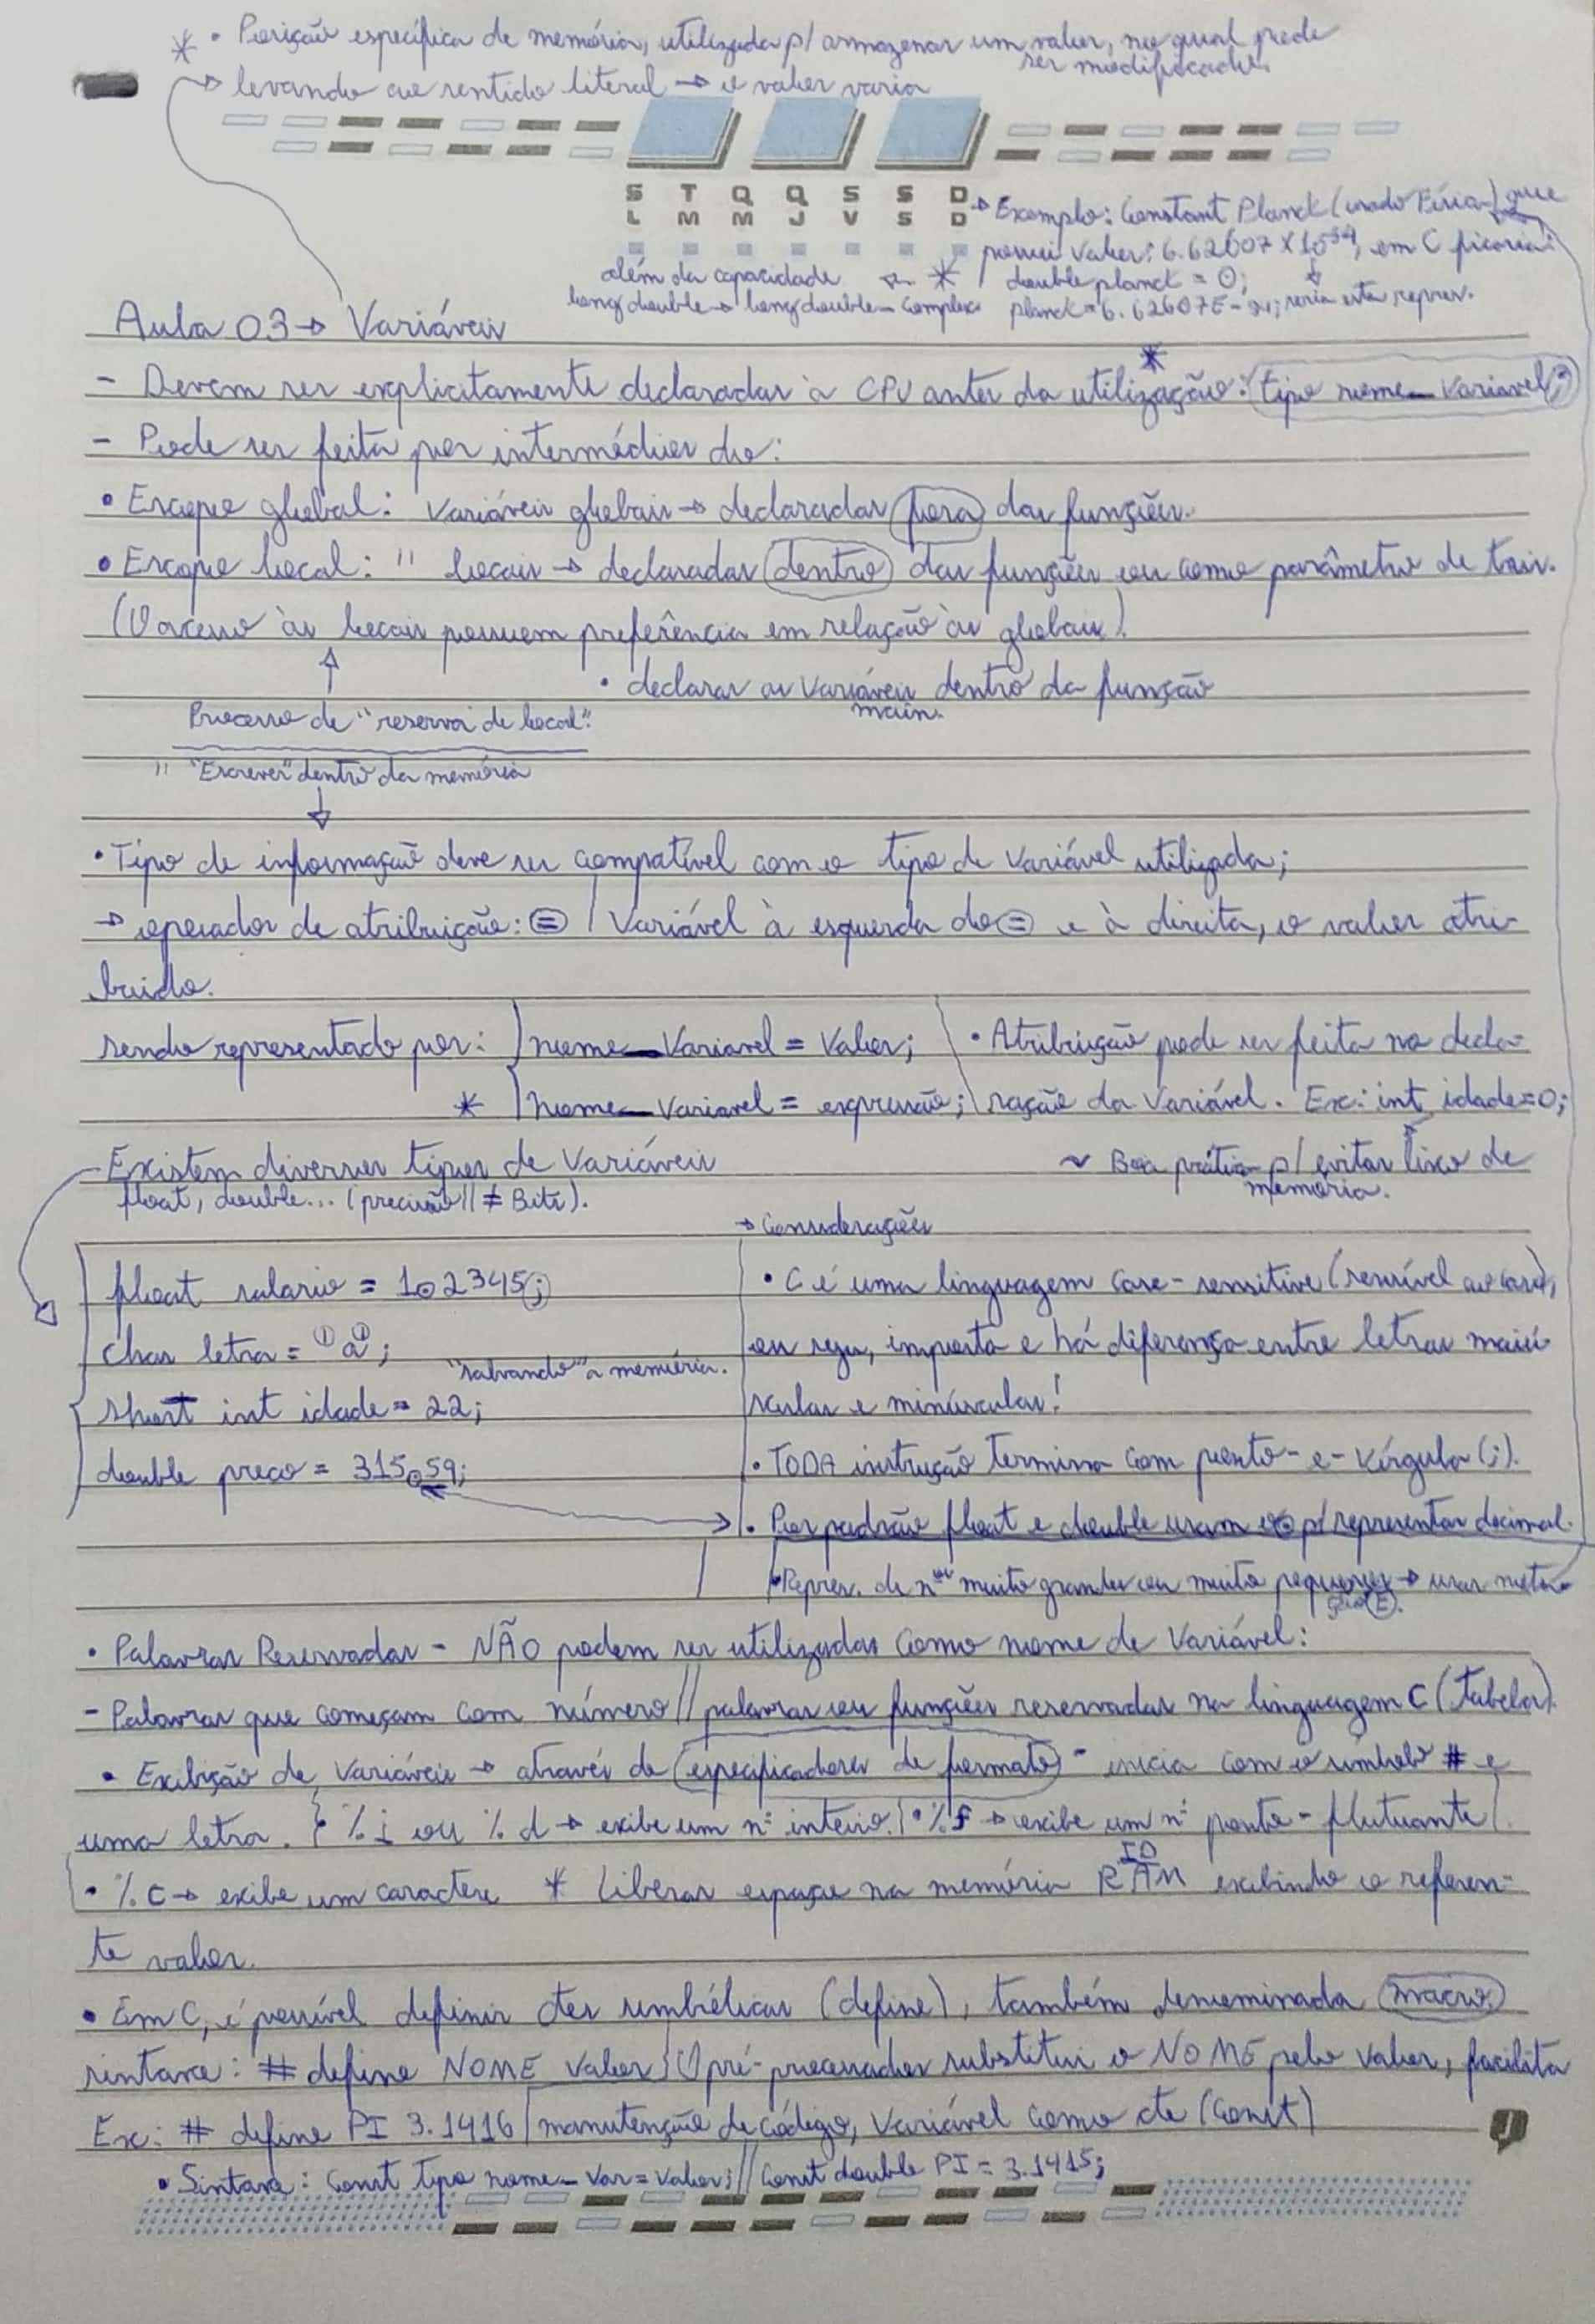 * • Posição específica de memória, utilizada p/ armazenar um valor, no qual pode
ser modificado.
→ levando ao sentido literal → o valor varia
S T Q Q S S D
L M M J V S D
→ Exemplo: Constant Planck (usado Física) que
possui valor: 6.62607 X 10^-34, em C ficaria:
além da capacidade ← * double planck = 0;
long double → long double_Complex planck = 6.62607E-34; seria esta repres.
Aula 03 → Variáveis
- Devem ser explicitamente declaradas à CPU antes da utilização: tipo nome_variavel;
*
- Pode ser feita por intermédio do:
• Escopo global: Variáveis globais → declaradas fora das funções.
• Escopo local: " locais → declaradas dentro das funções ou como parâmetro de tais.
(O acesso às locais possuem preferência em relação às globais).
• declarar as variáveis dentro da função
main.
Processo de "reserva de local".
" "Escrever" dentro da memória
• Tipo de informação deve ser compatível com o tipo de variável utilizada;
→ operador de atribuição: = / Variável à esquerda do = e à direita, o valor atri-
buido.
sendo representado por: nome_variavel = valor; • Atribuição pode ser feita na decla-
* nome_variavel = expressão; ração da variável. Ex: int idade=0;
Existem diversos tipos de Variáveis ~ Boa prática p/ evitar lixo de
memória.
float, double... (precisão // ≠ Bits).
→ Considerações
float salario = 1.02345; • C é uma linguagem case-sensitive (sensível ao case),
char letra = 'a'; ou seja, importa e há diferença entre letras maiú
"salvando" a memória.
short int idade = 22; sculas e minúsculas!
double preco = 315.59; • TODA instrução termina com ponto-e-vírgula (;).
• Por padrão float e double usam o . p/ representar decimal.
• Repres. de nos muito grandes ou muito pequenos → usar nota-
ção E.
• Palavras Reservadas - NÃO podem ser utilizadas como nome de variável:
- Palavras que começam com número // palavras ou funções reservadas na linguagem C (tabela).
• Exibição de Variáveis → através de especificadores de formato - inicia com o símbolo # e
uma letra. • %i ou %d → exibe um nº inteiro. • %f → exibe um nº ponto-flutuante
• %c → exibe um caractere * Liberar espaço na memória RAM exibindo o referen-
te valor.
• Em C, é possível definir ctes simbólicas (define), também denominada macro.
sintaxe: # define NOME valor O pré-processador substitui o NOME pelo valor, facilita
Ex: # define PI 3.1416 manutenção de código, variável como cte (const)
• Sintaxe: const tipo nome_var = valor; // const double PI = 3.1415;